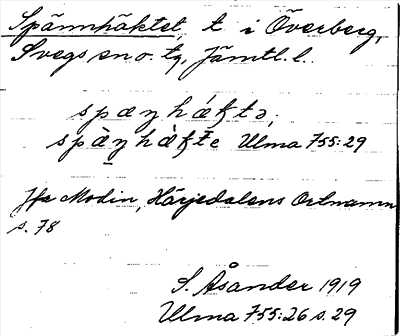 Spännhäktet, t. i Överberg,
Svegs sn o. tg, Jämtl. l.
spæŋhǽƭtə,
spæ̀ŋhæ̀ƭte Ulma 755:29
Jfr Modin, Härjedalens Ortnamn
s. 78
S. Åsander 1919
Ulma 755:26 s. 29